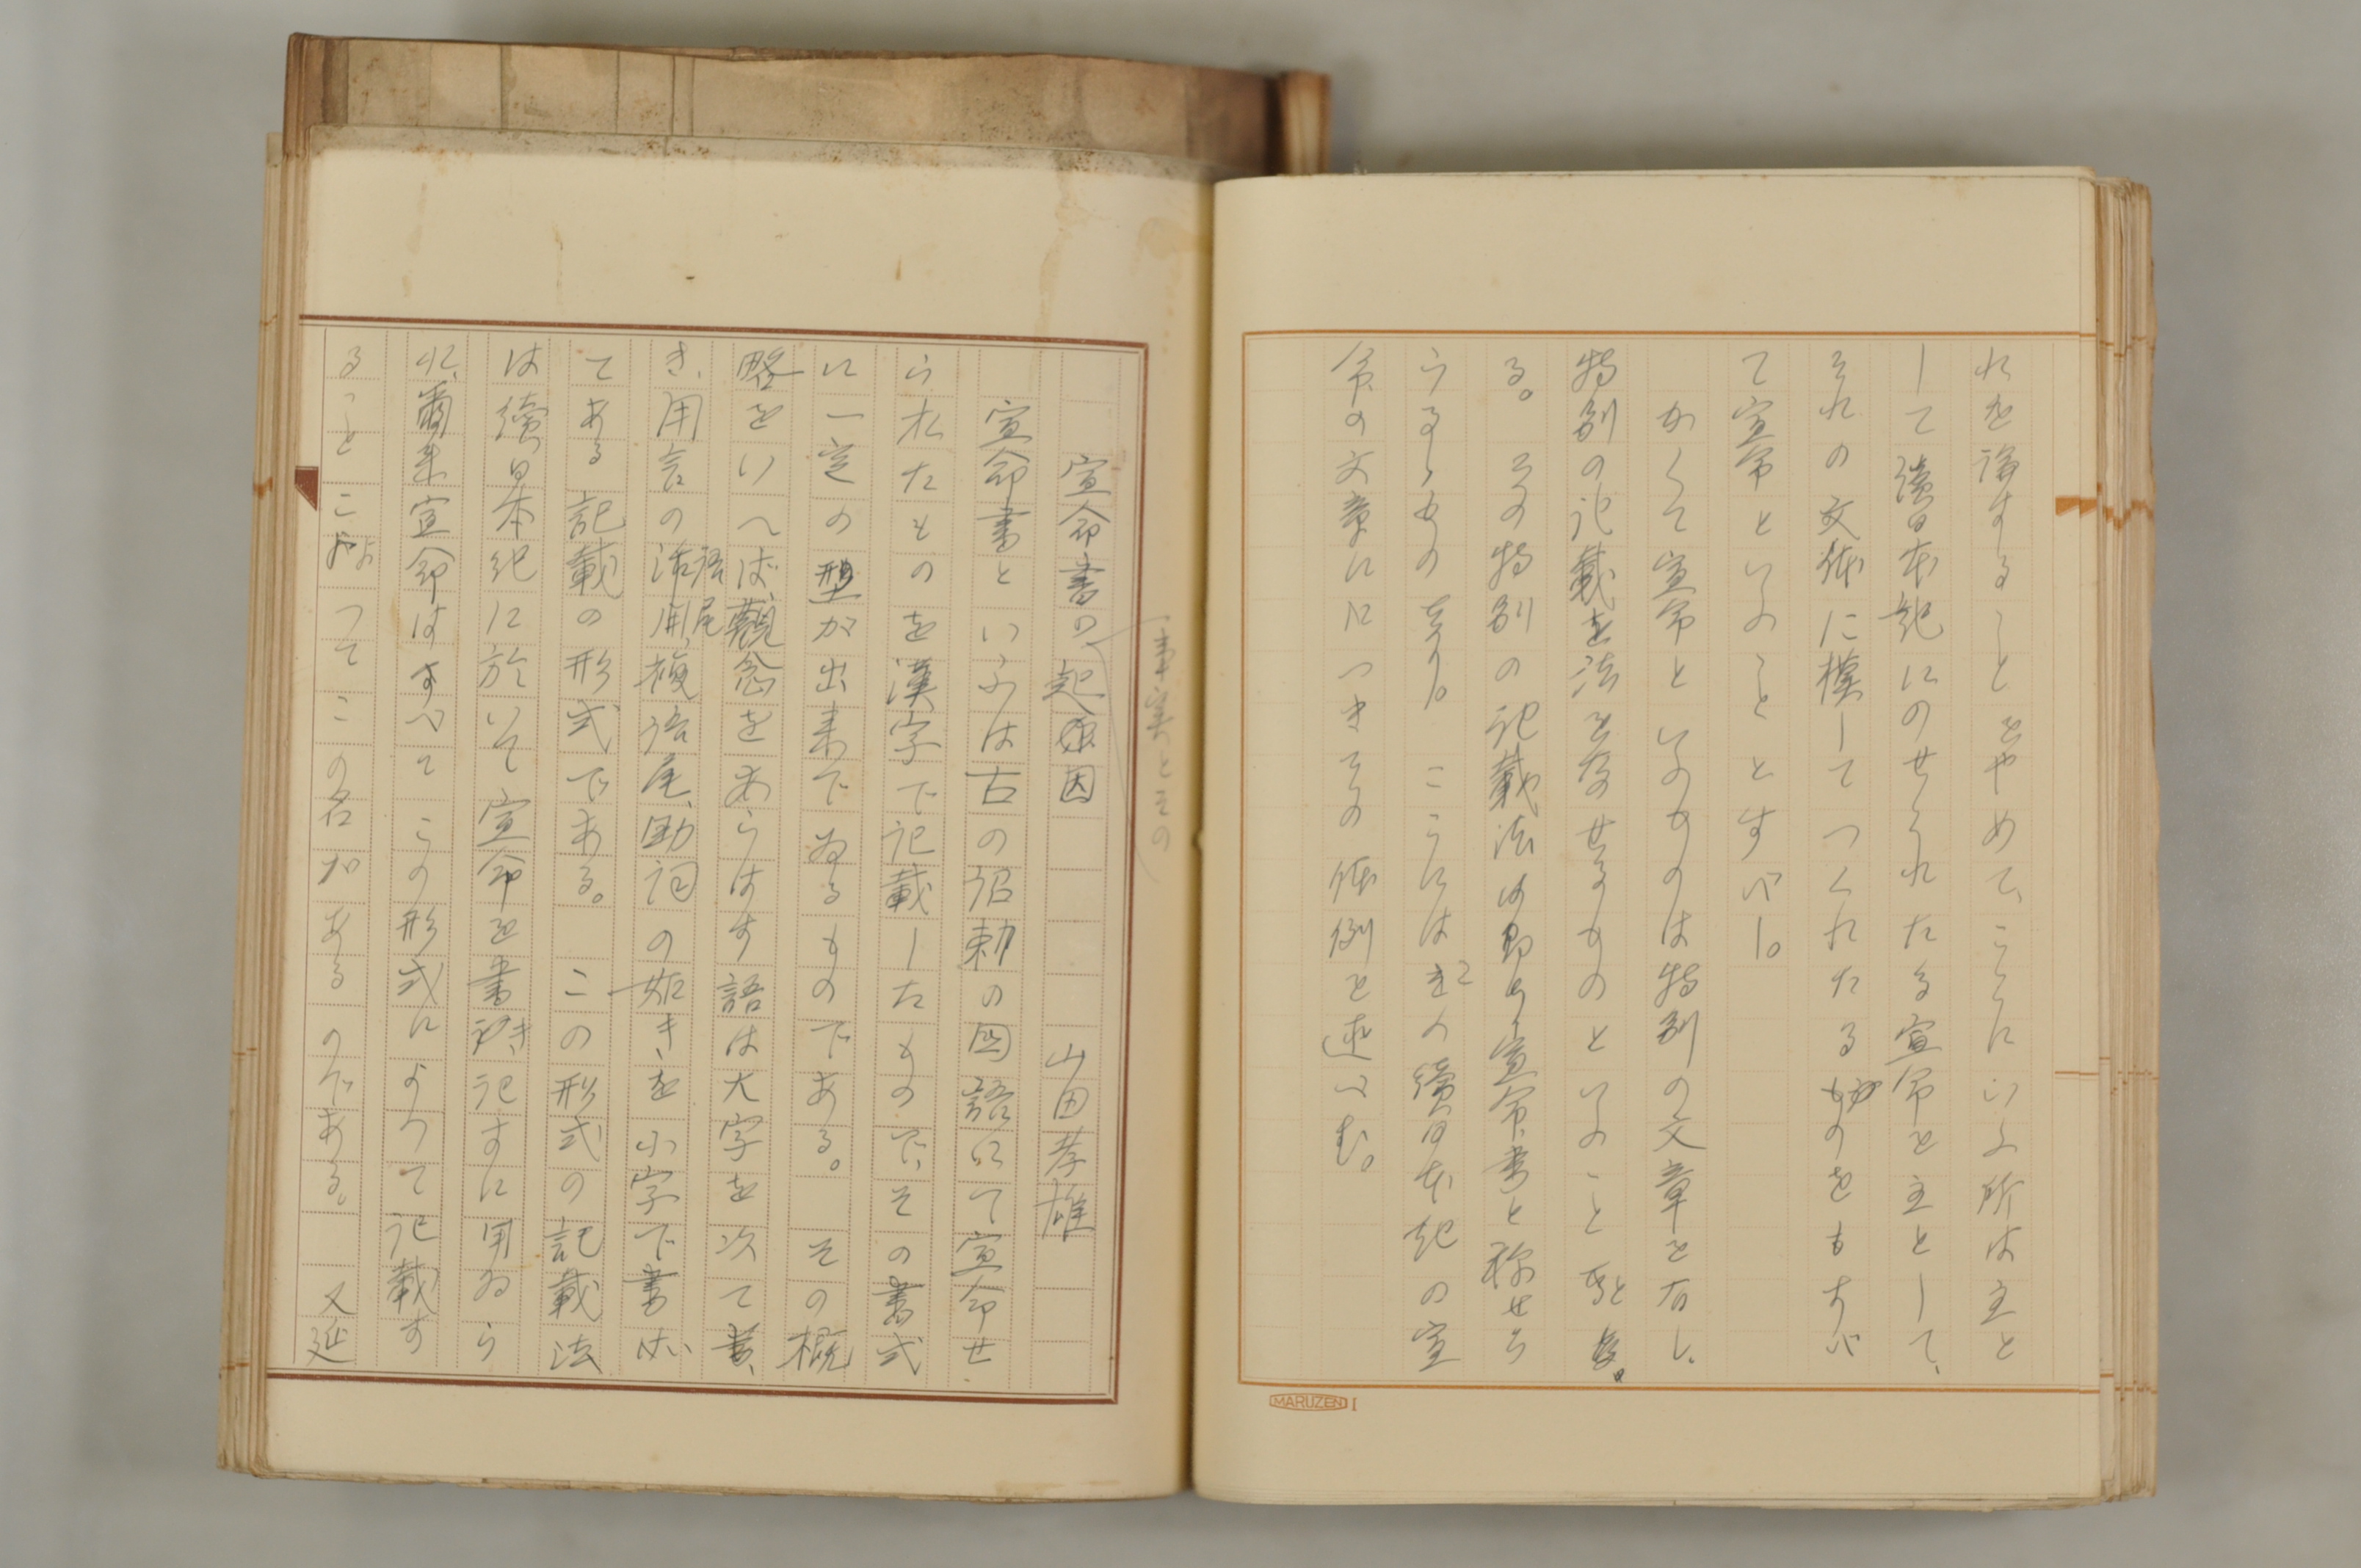 れを論ずることをやめて、こゝにいふ所は主と
して續日本紀にのせられたる宣命を主として、
それの文体に模してつくれたるものをもすべ
て宣命といふことゝすべし。
かくて宣命といふものは特別の文章を有し、
特別の記載法をなせるものといふことゝ
る。その特別の記載法は即ち宣命書と称せら
るゝもの なり。こゝには 續日本紀の宣
命の文章につきその体例を述べむ。
MARUZEN I
宣命書の起因 山田孝雄
宣命書といふは古の詔勅の国語にて宣命せ
られたものを漢字で記載したもので、その書式
に一定の型が出来てゐるものである。その概
略をいへば、觀念をあらはす語は大字を次て書
き、用言の語尾、複語尾、助詞の如きを小字で書い
てある記載の形式である。この形式の記載法
は續日本紀に於いて宣命を書き記すに用ゐら
れ、爾来宣命はすべてこの形式によつて記載す
ること よつてこの名があるのである。又延